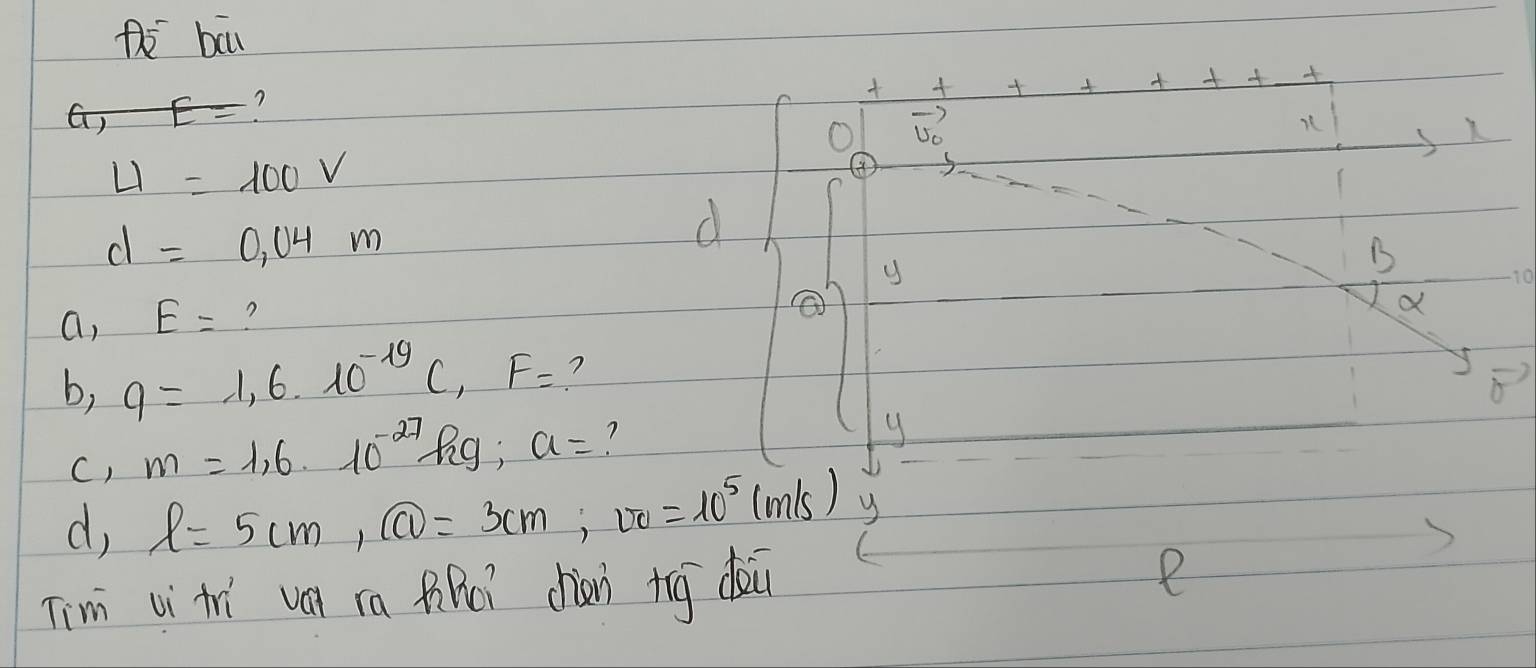 Đề bài
a, E = ?
U = 100 V
d = 0,04 m
a, E = ?
b, q = 1,6. 10⁻¹⁹ C, F = ?
c, m = 1,6. 10⁻²⁷ kg; a = ?
d, l = 5 cm, ⓐ = 3cm; v₀ = 10⁵ (m/s)
Tìm vị trí vật ra khỏi điện trg đều
+ + + + + + + +
O v₀ x x
+
d
y B
ⓐ α
v
y
y
l
10